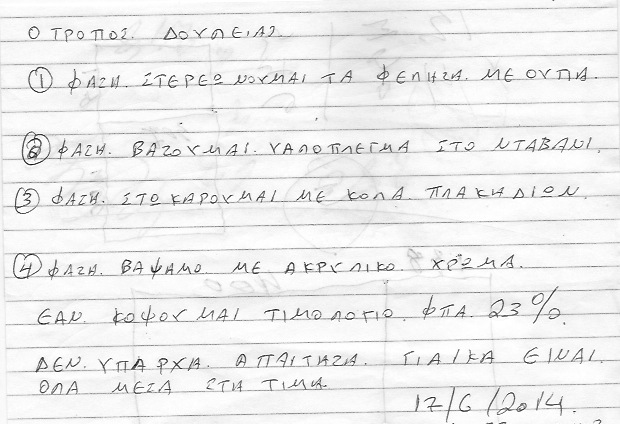 Ο ΤΡΟΠΟΣ. ΔΟΥΛΕΙΑΣ.
① ΦΑΣΗ. ΣΤΕΡΕΩΝΟΥΜΑΙ ΤΑ ΦΕΛΗΖΑ. ΜΕ ΟΥΠΑ.
② ΦΑΣΗ. ΒΑΖΟΥΜΑΙ. ΥΑΛΟΠΛΕΓΜΑ ΣΤΟ ΝΤΑΒΑΝΙ.
③ ΦΑΣΗ. ΣΤΩΚΑΡΟΥΜΑΙ ΜΕ ΚΟΛΑ. ΠΛΑΚΗΔΙΩΝ.
④ ΦΑΣΗ. ΒΑΨΑΜΟ ΜΕ ΑΚΡΥΛΙΚΟ. ΧΡΩΜΑ.
ΕΑΝ. ΚΟΦΟΥΜΑΙ ΤΙΜΟΛΟΓΙΟ. ΦΠΑ. 23%.
ΔΕΝ. ΥΠΑΡΧΑ. ΑΠΑΙΤΗΣΑ. ΓΙΑΙΚΑ ΕΙΝΑΙ.
ΟΛΑ ΜΕΣΑ ΣΤΗ ΤΙΜΑ.
17/6/2014.